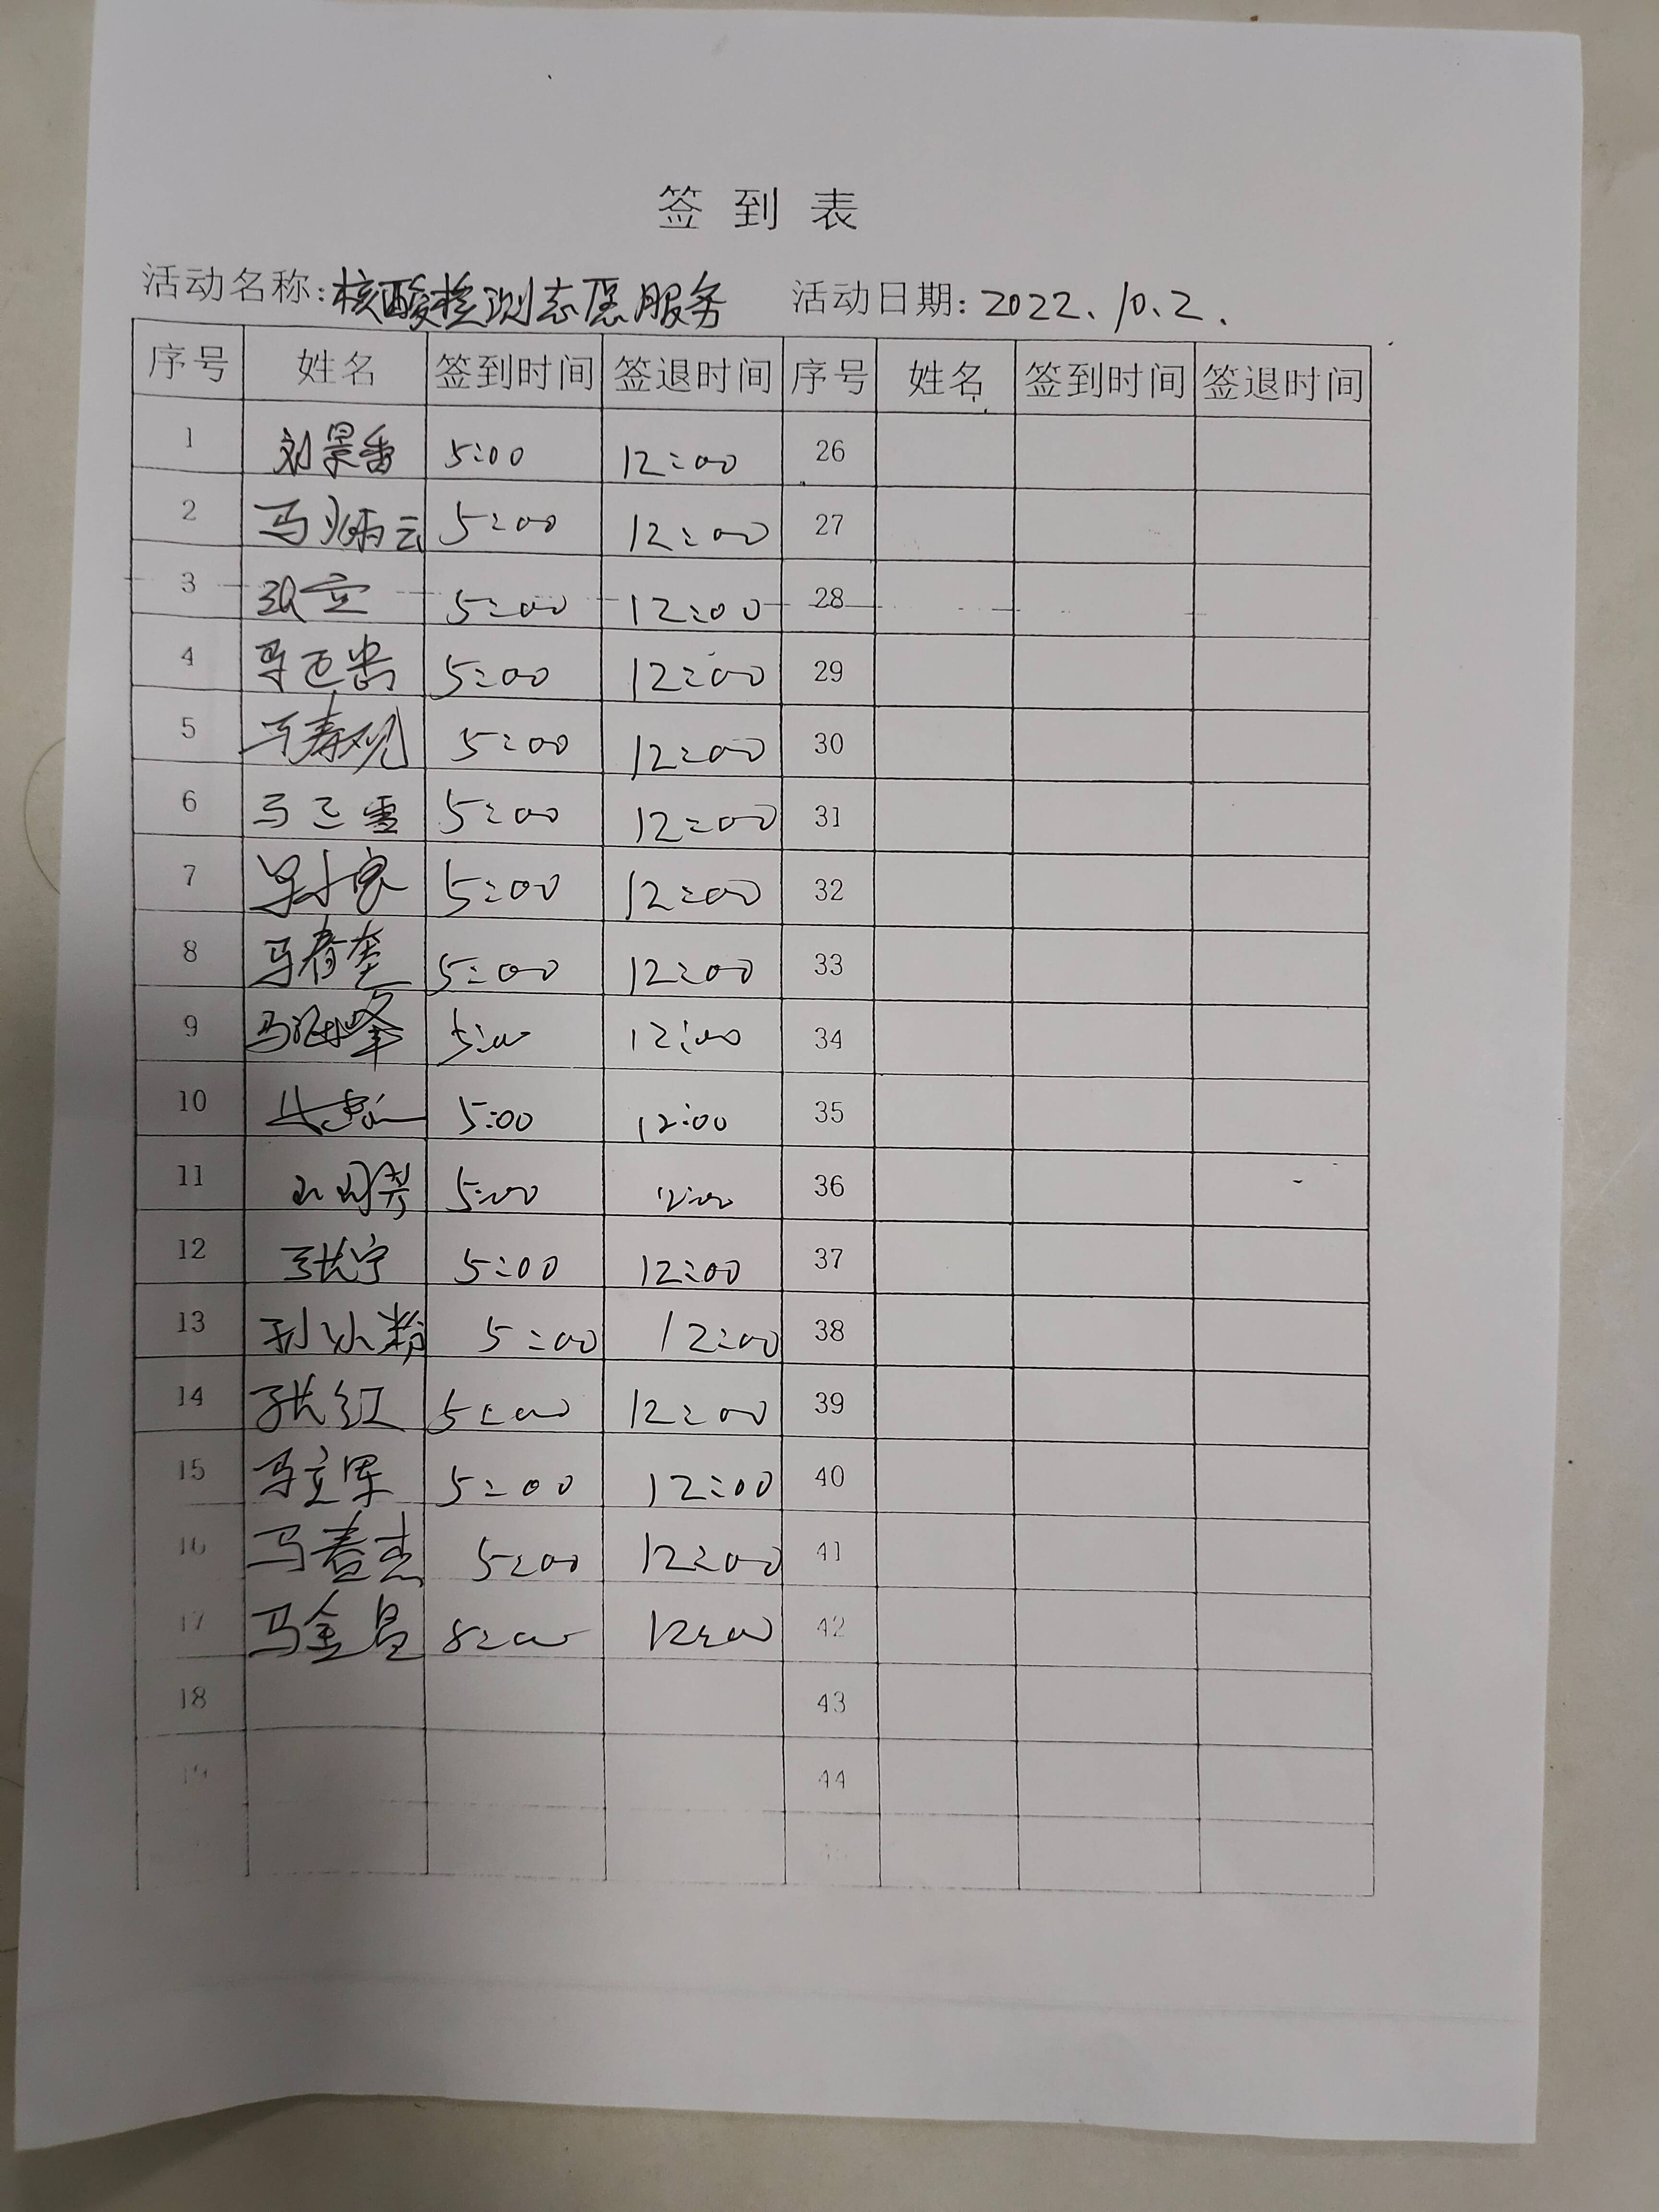 签到表
活动名称:核酸检测志愿服务 活动日期:2022.10.2.
序号 姓名 签到时间 签退时间 序号 姓名 签到时间 签退时间
1 刘景香 5:00 12:00 26
2 马炳云 5:00 12:00 27
3 5:00 12:00 28
4 5:00 12:00 29
5 5:00 12:00 30
6 5:00 12:00 31
7 5:00 12:00 32
8 马春奎 5:00 12:00 33
9 5:00 12:00 34
10 5:00 12:00 35
11 5:00 12:00 36
12 张宁 5:00 12:00 37
13 5:00 12:00 38
14 张红 5:00 12:00 39
15 马立军 5:00 12:00 40
16 马春杰 5:00 12:00 41
17 马金昌 8:00 12:00 42
18 43
19 44